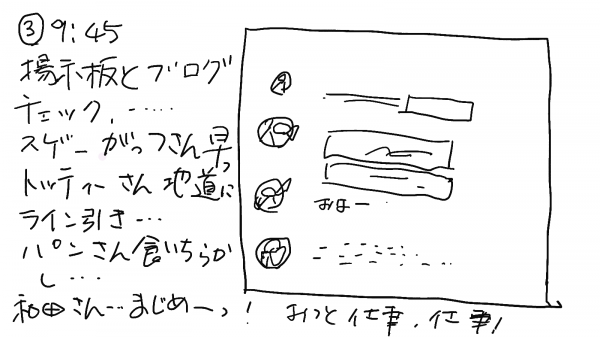 ③9:45
掲示板とブログ
チェック、……
スゲーがっつさん早っ
トッティーさん地道に
ライン引き…
パンさん食いちらか
し…
和田さん…まじめーっ! おっと仕事、仕事!
おはー